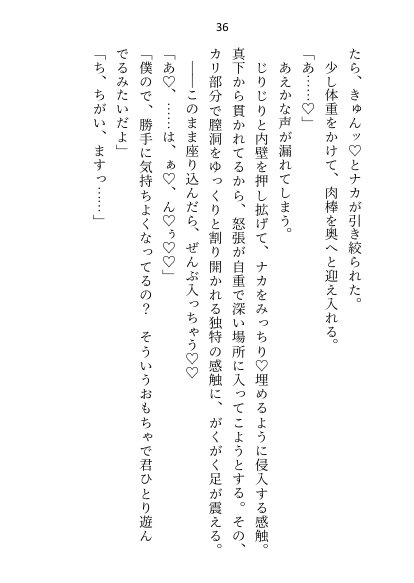 36
たら、きゅんッ♡とナカが引き絞られた。
少し体重をかけて、肉棒を奥へと迎え入れる。
「あ……♡」
あえかな声が漏れてしまう。
じりじりと内壁を押し拡げて、ナカをみっちり♡埋めるように侵入する感触。
真下から貫かれてるから、怒張が自重で深い場所に入ってこようとする。その、
カリ部分で膣洞をゆっくりと割り開かれる独特の感触に、がくがく足が震える。
――このまま座り込んだら、ぜんぶ入っちゃう♡♡
「あ♡、……は、ぁ♡、ん♡ぅ♡♡」
「僕ので、勝手に気持ちよくなってるの？　そういうおもちゃで君ひとり遊ん
でるみたいだよ」
「ち、ちがい、ますっ……」